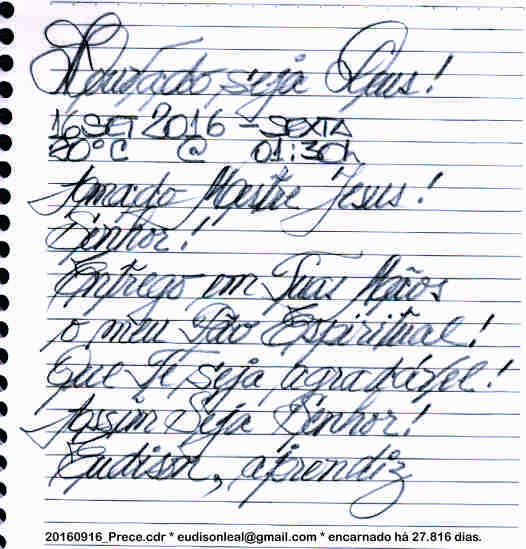 Louvado seja Deus!
16 SET 2016 - SEXTA
20°C @ 01:30h
Amado Mestre Jesus!
Senhor!
Entrego em Tuas Mãos
o meu Pão Espiritual!
Que Te seja agradável!
Assim Seja Senhor!
Eudison, aprendiz
20160916_Prece.cdr * eudisonleal@gmail.com * encarnado há 27.816 dias.